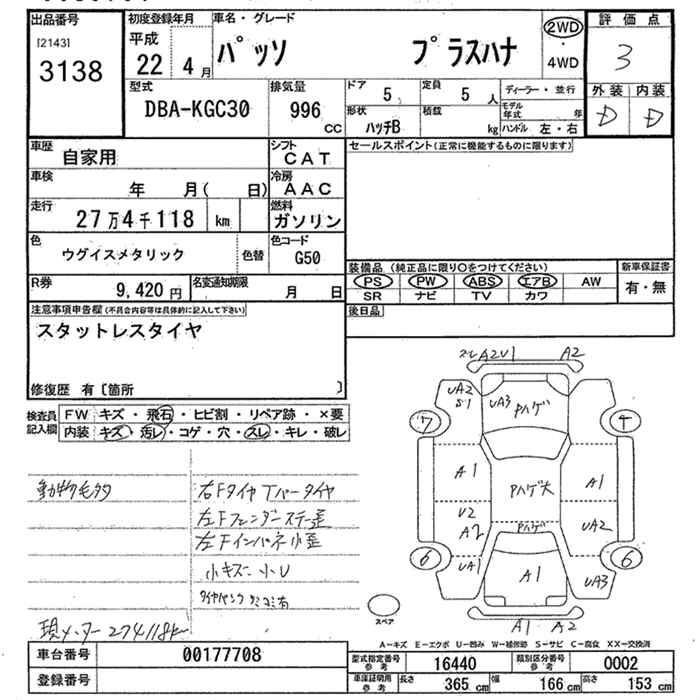 出品番号
[2143]
3138
初度登録年月
平成
22 4 月
車名・グレード
パッソ プラスハナ
2WD
・
4WD
評価点
3
外装 内装
D D
型式
DBA-KGC30
排気量
996
CC
ドア
5
定員
5 人
形状
ハッチB
積載
kg
ディーラー・並行
モデル年式 年
ハンドル 左・右
車歴
自家用
シフト
CAT
車検
年 月( 日)
冷房
AAC
走行
27万4千118 km
燃料
ガソリン
色
ウグイスメタリック
色替
色コード
G50
R券
9,420 円
名変通知期限
月 日
セールスポイント(正常に機能するものに限ります)
装備品 (純正品に限り○をつけてください)
PS PW ABS エアB AW
SR ナビ TV カワ
新車保証書
有・無
後日品
注意事項申告欄(不具合内容等は具体的に記入して下さい)
スタットレスタイヤ
修復歴 有〔箇所 〕
検査員
記入欄
FW キズ・飛石・ヒビ割・リペア跡・×要
内装 キズ・汚レ・コゲ・穴・スレ・キレ・破レ
動物毛多
右Fタイヤ Tパータイヤ
左Fフェンダーステー歪
左Fインパネ小歪
小キズ 小U
現メーター 274118k
スレ A2U1 A2
UA2
S1
UA3
Pハゲ
7
4
A1
Pハゲ大
A1
U2
A2
Pハゲ
UA2
6
UA1
A1
UA3
6
A1 A2
スペア
A-キズ E-エクボ U-凹み W-補修跡 S-サビ C-腐食 XX-交換済
車台番号
00177708
登録番号
型式指定番号
参考
16440
類別区分番号
参考
0002
車庫証明用
参考
長さ 365 cm 幅 166 cm 高さ 153 cm